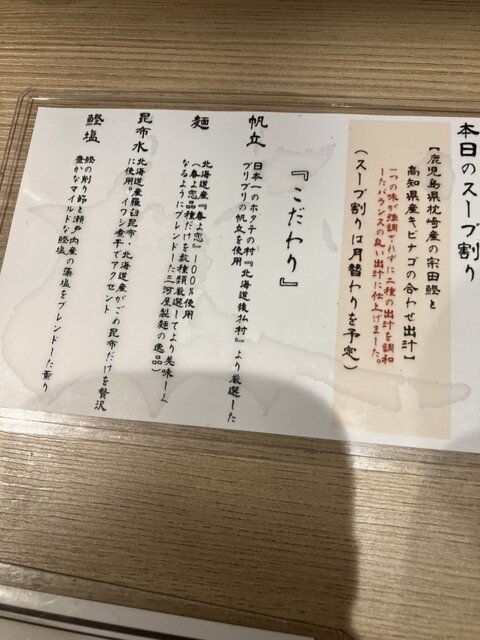 本日のスープ割り
【鹿児島県枕崎産の宗田鰹と
高知県産キビナゴの合わせ出汁】
一つの味が強調されずに二種の出汁を調和
したバランスの良い出汁に仕上げました。
(スープ割りは月替わりを予定)
『こだわり』
帆立
日本一のホタテの村『北海道猿払村』より厳選した
プリプリの帆立を使用
麺
北海道産『春よ恋』100%使用
(春よ恋品種だけを数種類厳選してより美味しく
なるようにブレンドした三河屋製麺の逸品)
昆布水
北海道産羅臼昆布・北海道産がごめ昆布だけを贅沢
に使用。イワシ煮干でアクセント
鰹塩
鰹の削り節と瀬戸内産の藻塩をブレンドした香り
豊かなマイルドな鰹塩